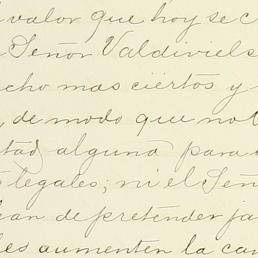 valor que hoy se c
Señor Valdiviels
cho mas ciertos y
, de modo que no t
tad alguna para
legales; ni el Señ
ean de pretender ja
les aumenten la can